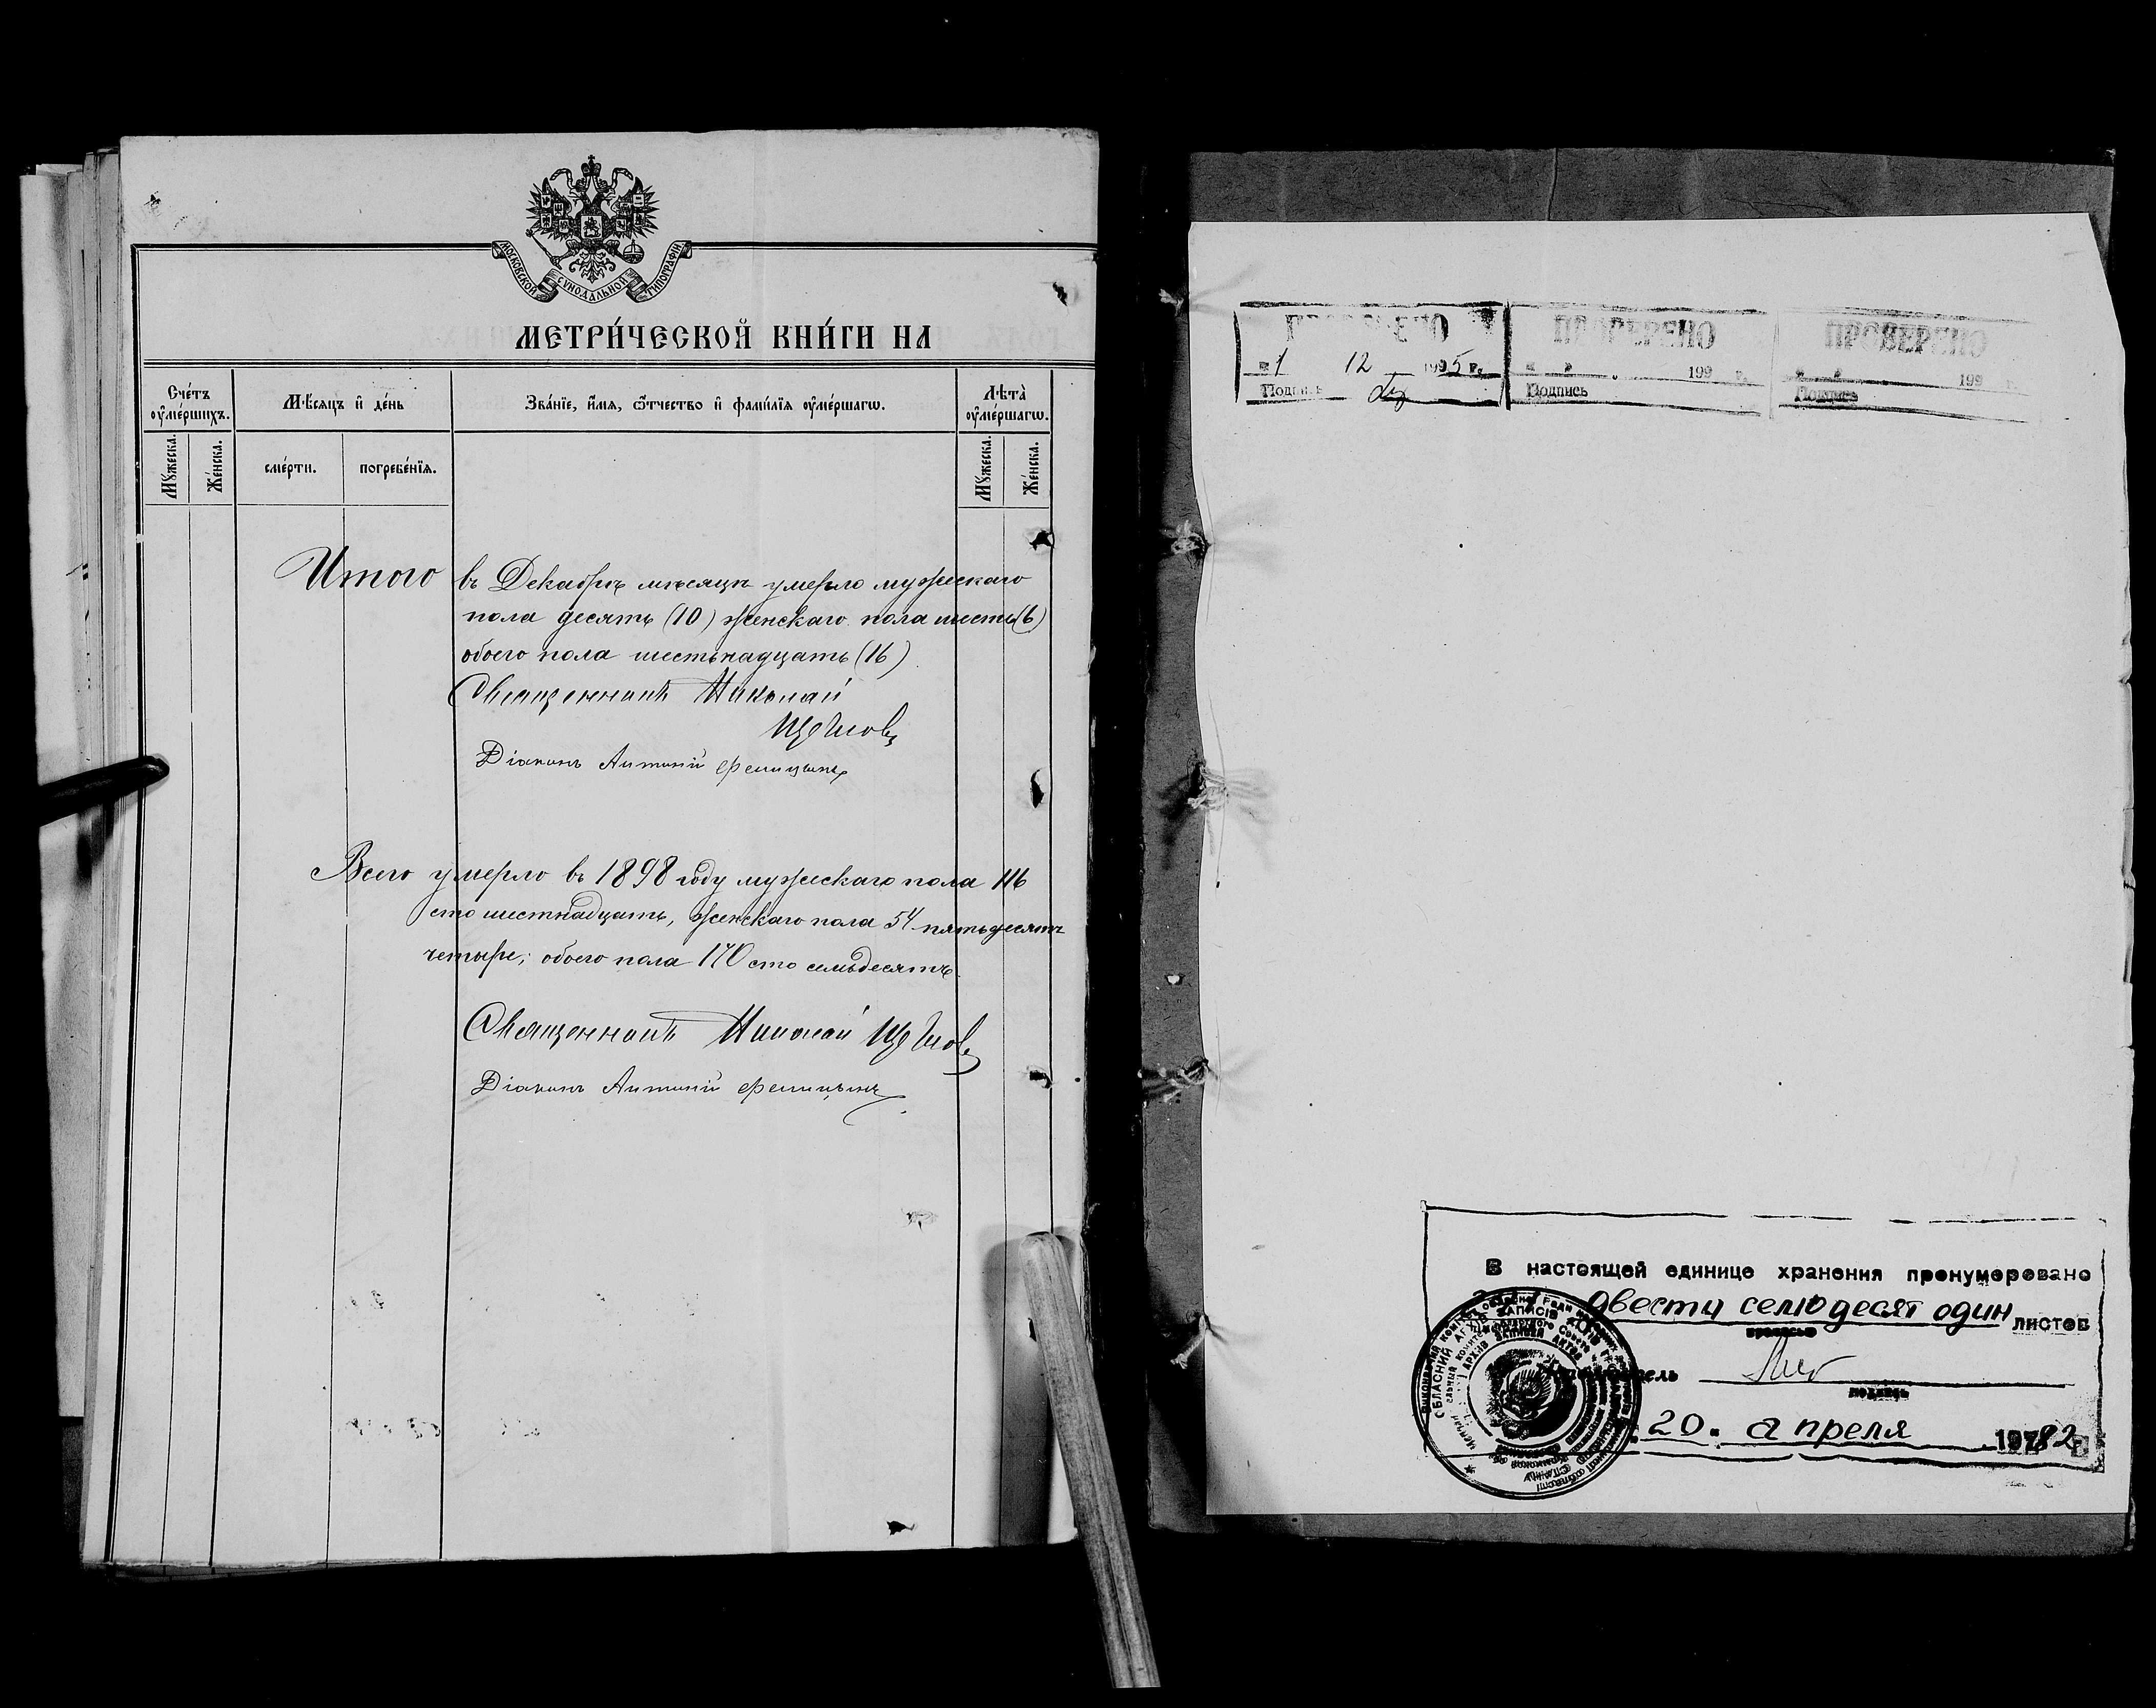 МОСКОВСКОЙ СѴНОДАЛЬНОЙ ТИПОГРАФІИ
МЕТРИ́ЧЕСКОЙ КНИ́ГИ НА
Сче́тъ ᲂу҆ме́ршихъ.
Мѣ́сѧцъ и҆ де́нь
Зва́нїе, и҆́мѧ, ѻ҆́тчество и҆ фами́лїѧ ᲂу҆ме́ршагѡ.
Лѣта̀ ᲂу҆ме́ршагѡ.
Мꙋ́жеска.
Же́нска.
сме́рти.
погребе́нїѧ.
Мꙋ́жеска.
Же́нска.
Итого въ Декабрѣ мѣсяцѣ умерло мужескаго
пола десять (10) женскаго пола шесть (6)
обоего пола шестьнадцать (16)
Священникъ Николай
Діаконъ Антоній
Всего умерло въ 1898 году мужескаго пола 116
сто шестнадцать, женскаго пола 54 пятьдесятъ
четыре; обоего пола 170 сто семьдесятъ.
Священникъ Николай
Діаконъ Антоній
ПРОВЕРЕНО
«1 12 1995 г.
Подпись
ПРОВЕРЕНО
« » 199 г.
Подпись
ПРОВЕРЕНО
« » 199 г.
Подпись
В настоящей единице хранения пронумеровано
двести семюдесят один листов
прописью
подпись
20. апреля 1982 г.